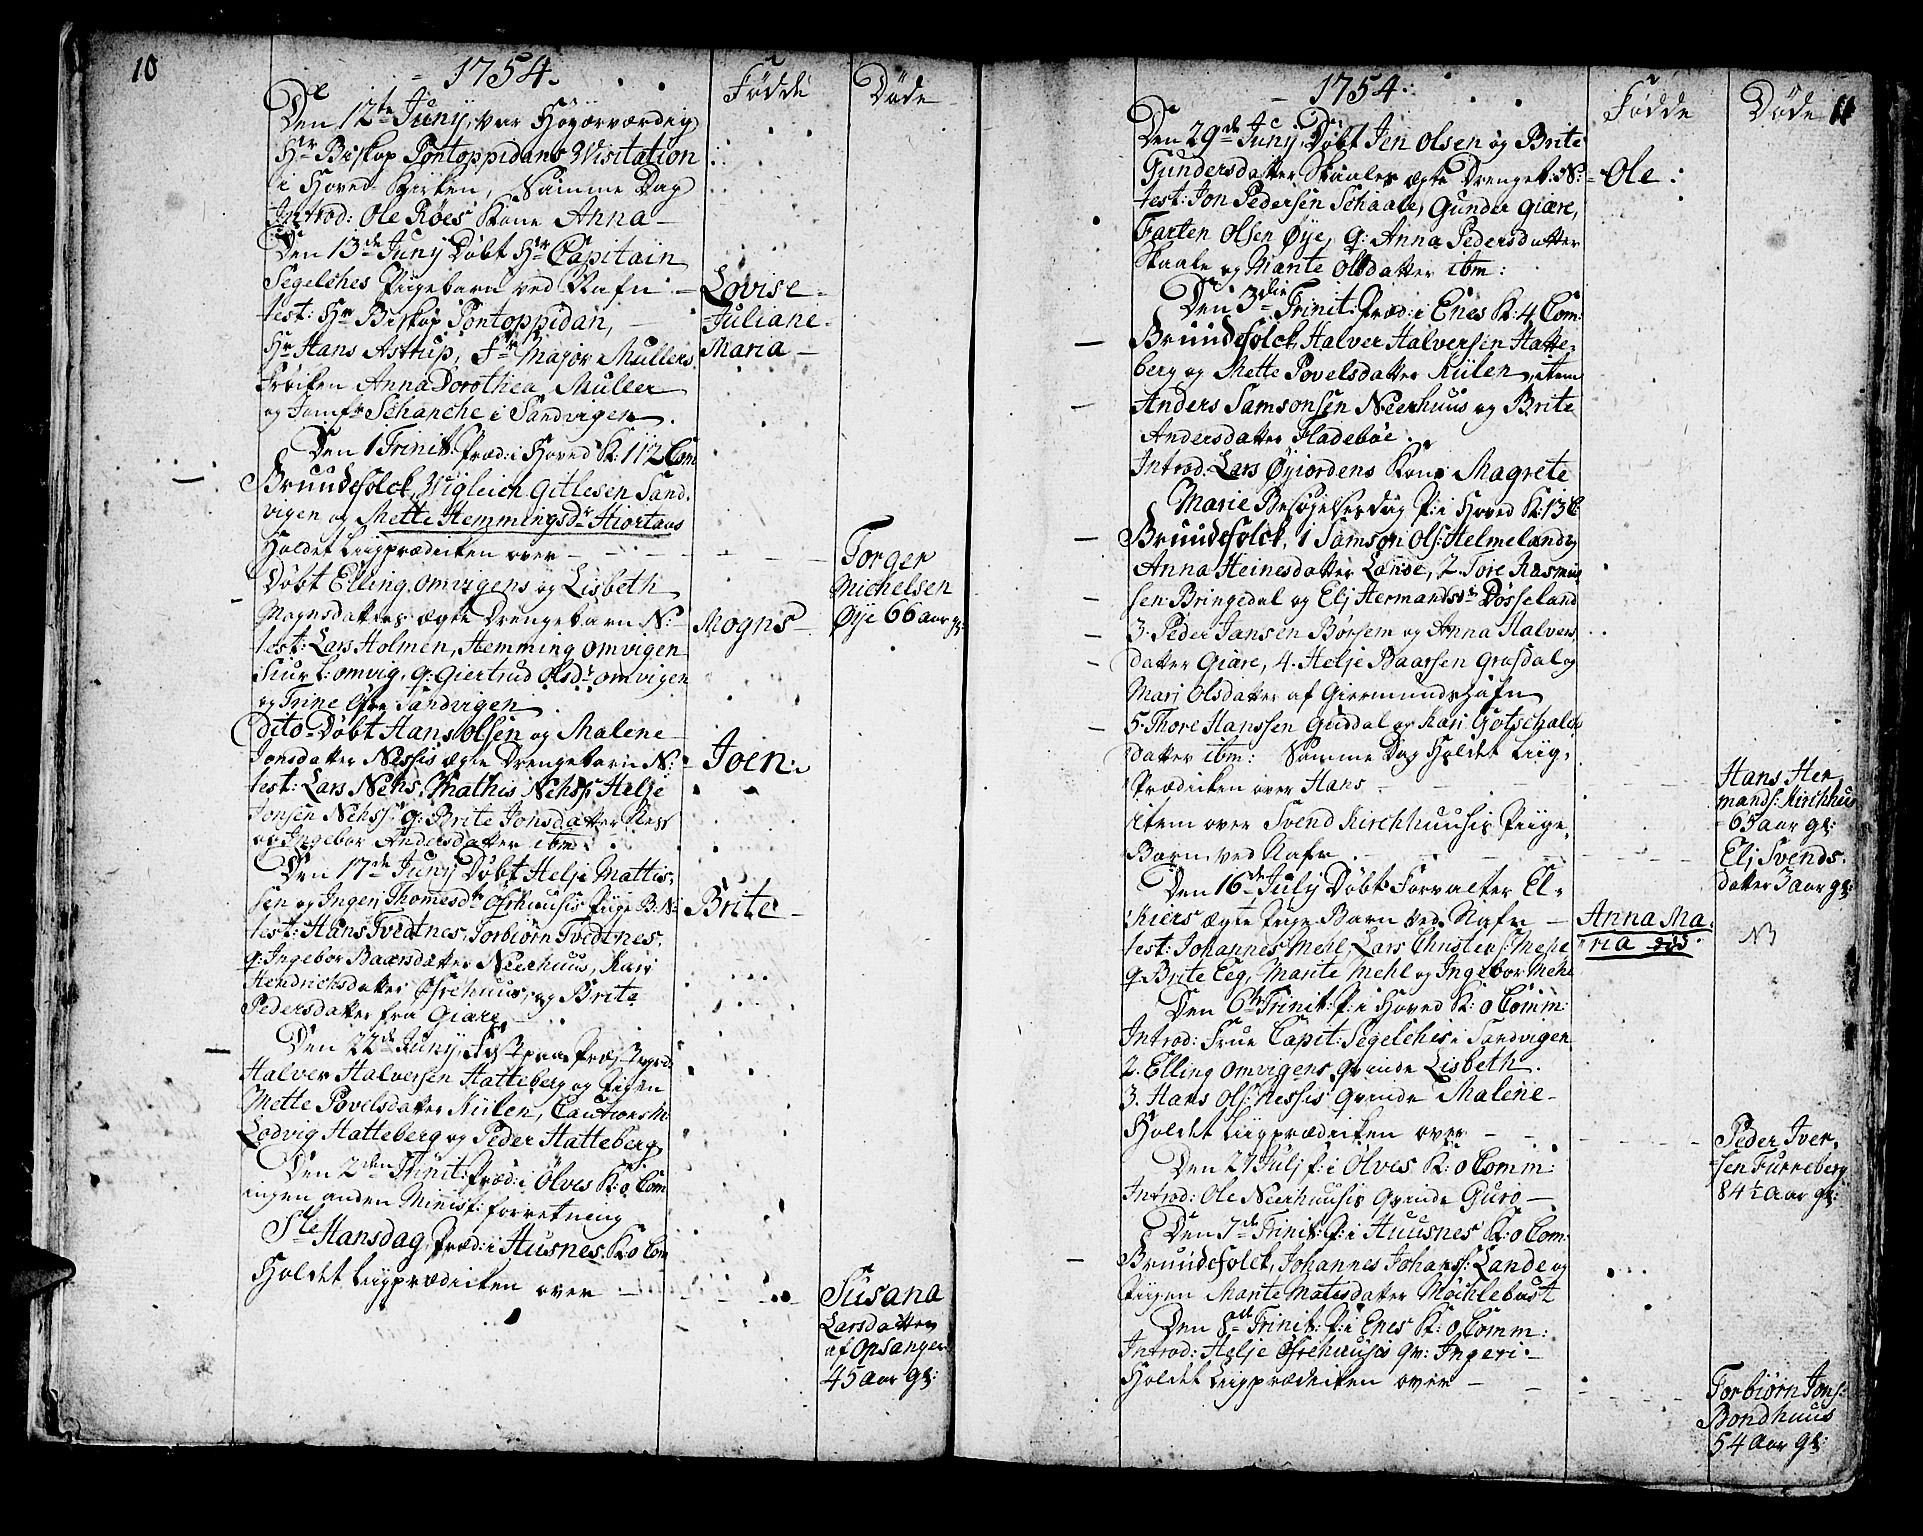 10
1754.
Födde
Döde
Den 12te Juny, var Høyærværdig
Hr Biskop Pontoppidans Visitation
i Hoved-Kirken, Samme Dag
Introd: Ole Røes Kone Anna
Den 13de Juny Døbt Hr Capitain
Segelches Pigebarn ved Nafn
Lovise
test: Hr Biskop Pontoppidan,
Juliane
Hr Hans Astrup, Fr Major Mullers
Maria
Frøiken Anna Dorothea Muller
og Jomfr Schanche i Sandvigen
Den 1 Trinit: Præd: i Hoved K: 112 Com
Bruudefolck, Vigleich Gitlesen Sand-
vigen og Mette Hemmingsdr Hiortaas
Holdet Liigprædicken over
Torger
Michelsen
Øye 66 aar gl:
Døbt Elling Omvigens og Lisbeth
Mognsdatters ægte Drengebarn N:
Mogns
test: Lars Holmen, Hemming Omvigen
Siur L: Omvig, q: Giertrud Olsdr Omvigen
og Trine Sandvigen
Dito Døbt Hans Olsen og Malene
Jonsdatter Nessis ægte Drengebarn N:
Joen
test: Lars Nehs, Mathis Nehs, Helje
Jonsen Nehss: q: Brite Jonsdatter Ness
og Ingebor Andersdatter ibm
Den 17de Juny Døbt Helje Mattis-
sen og Ingeri Thomesdr Østrehuusis Piige B: N:
Brite
test: Hans Tvedtnes, Torbiørn Tvedtnes,
q: Ingebor Baarsdatter Neerhuus, Kari
Hendrichsdatter Østrehuus, og Brite
Pedersdatter fra Giære
Den 22de Juny,
Halver Halversen Hatteberg og Pigen
Mette Povelsdatter Kiilen, Cautions M:
Lodvig Hatteberg og Peder Hatteberg
Den 2den Trinit: Præd: i Ølves K: 0 Com
ingen anden Minist: forretning
Ste Hansdag, Præd: i Husnes K: 0 Com
Holdet Liigprædicken over
Susana
Larsdatter
af Opsanger
45 aar gl:
1754.
Födde
Döde
11
Den 29de Juny Døbt Jen Olsen og Brite
Gundersdatter Skaales ægte Drengeb: N:
Ole:
test: Jon Pedersen Schaale, Gunder Giære,
Tarten Olsen Øye, q: Anna Pedersdatter
Skaale og Mante Olsdatter ibm:
Den 3die Trinit: Præd: i Enes K: 4 Com:
Bruudefolck Halver Halversen Hatte-
berg og Mette Povelsdatter Kiilen, item
Anders Samsonsen Neerhuus og Brite
Andersdatter Fladebøe.
Introd: Lars Øyiordens Kone Magrete
Marie Besøgelsesdag P: i Hoved K: 13 C
Bruudefolck, 1 Samson Ols: Helmeland og
Anna Heinesdatter Lande, 2. Tore Rasmus
sen Bringedal og Elj Hermandsdr Døsseland
3. Peder Jansen Børsem og Anna Halvers
datter Giære, 4. Helje Baarsen Grasdal og
Mari Olsdatter af Giermundshafn
5. Thore Hanssen Guddal og Kari Gotschalcks
datter ibm: Samme Dag Holdet Liig-
Prædicken over Hans
Hans Her
mands: Kirchhus
65 aar gl:
item over Svend Kirchhuusis Piige-
Barn ved Nafn
Elj Svends-
datter 3 aar gl:
Den 16de July Døbt Forvalter El-
kiers ægte Pige Barn ved Nafn
Anna Ma-
test: Johannes Mehl, Lars Christens: Mehl
ria
NB
q: Brite Eeg, Mante Mehl og Ingebor Mehl
Den 6te Trinit: P: i Hoved K: 0 Comm:
Introd: Frue Capit: Segelches i Sandvigen
2. Elling Omvigens qvinde Lisbeth.
3. Hans Ols: Nessis qvinde Malene
Holdet Liigprædicken over
Peder Iver-
sen Furreberg
84½ Aar gl:
Den 27 Julj P: i Ølves K: 0 Comm:
Introd: Ole Neerhuusis qvinde Guro
Den 7de Trinit: P: i Huusnes K: 0 Com:
Bruudefolck, Johannes Johans: Lande og
Piigen Mante Matisdatter Møchlebust
Den 8de Trinit: P: i Enes K: 0 Comm:
Introd: Helje Østrehuusis qv: Ingeri
Holdet Liigprædicken over
Torbiørn Jons:
Bondhuus
54 Aar gl: